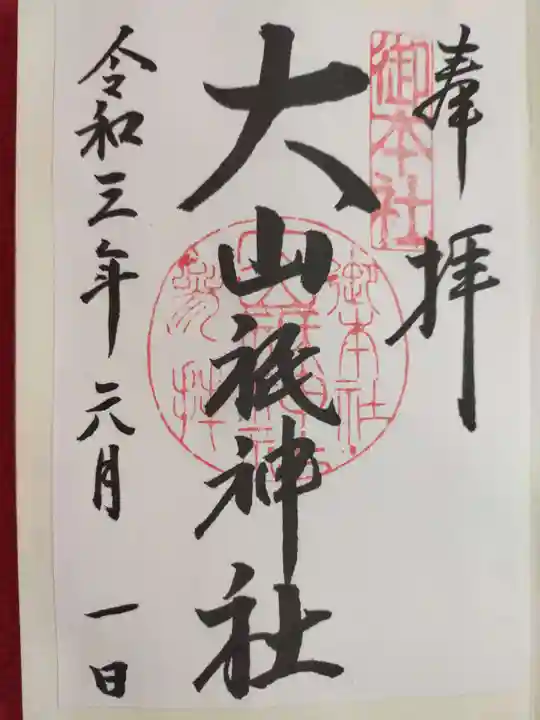 奉拝
御本社
大山祇神社
御本社
大山祇神社
令和三年六月一日